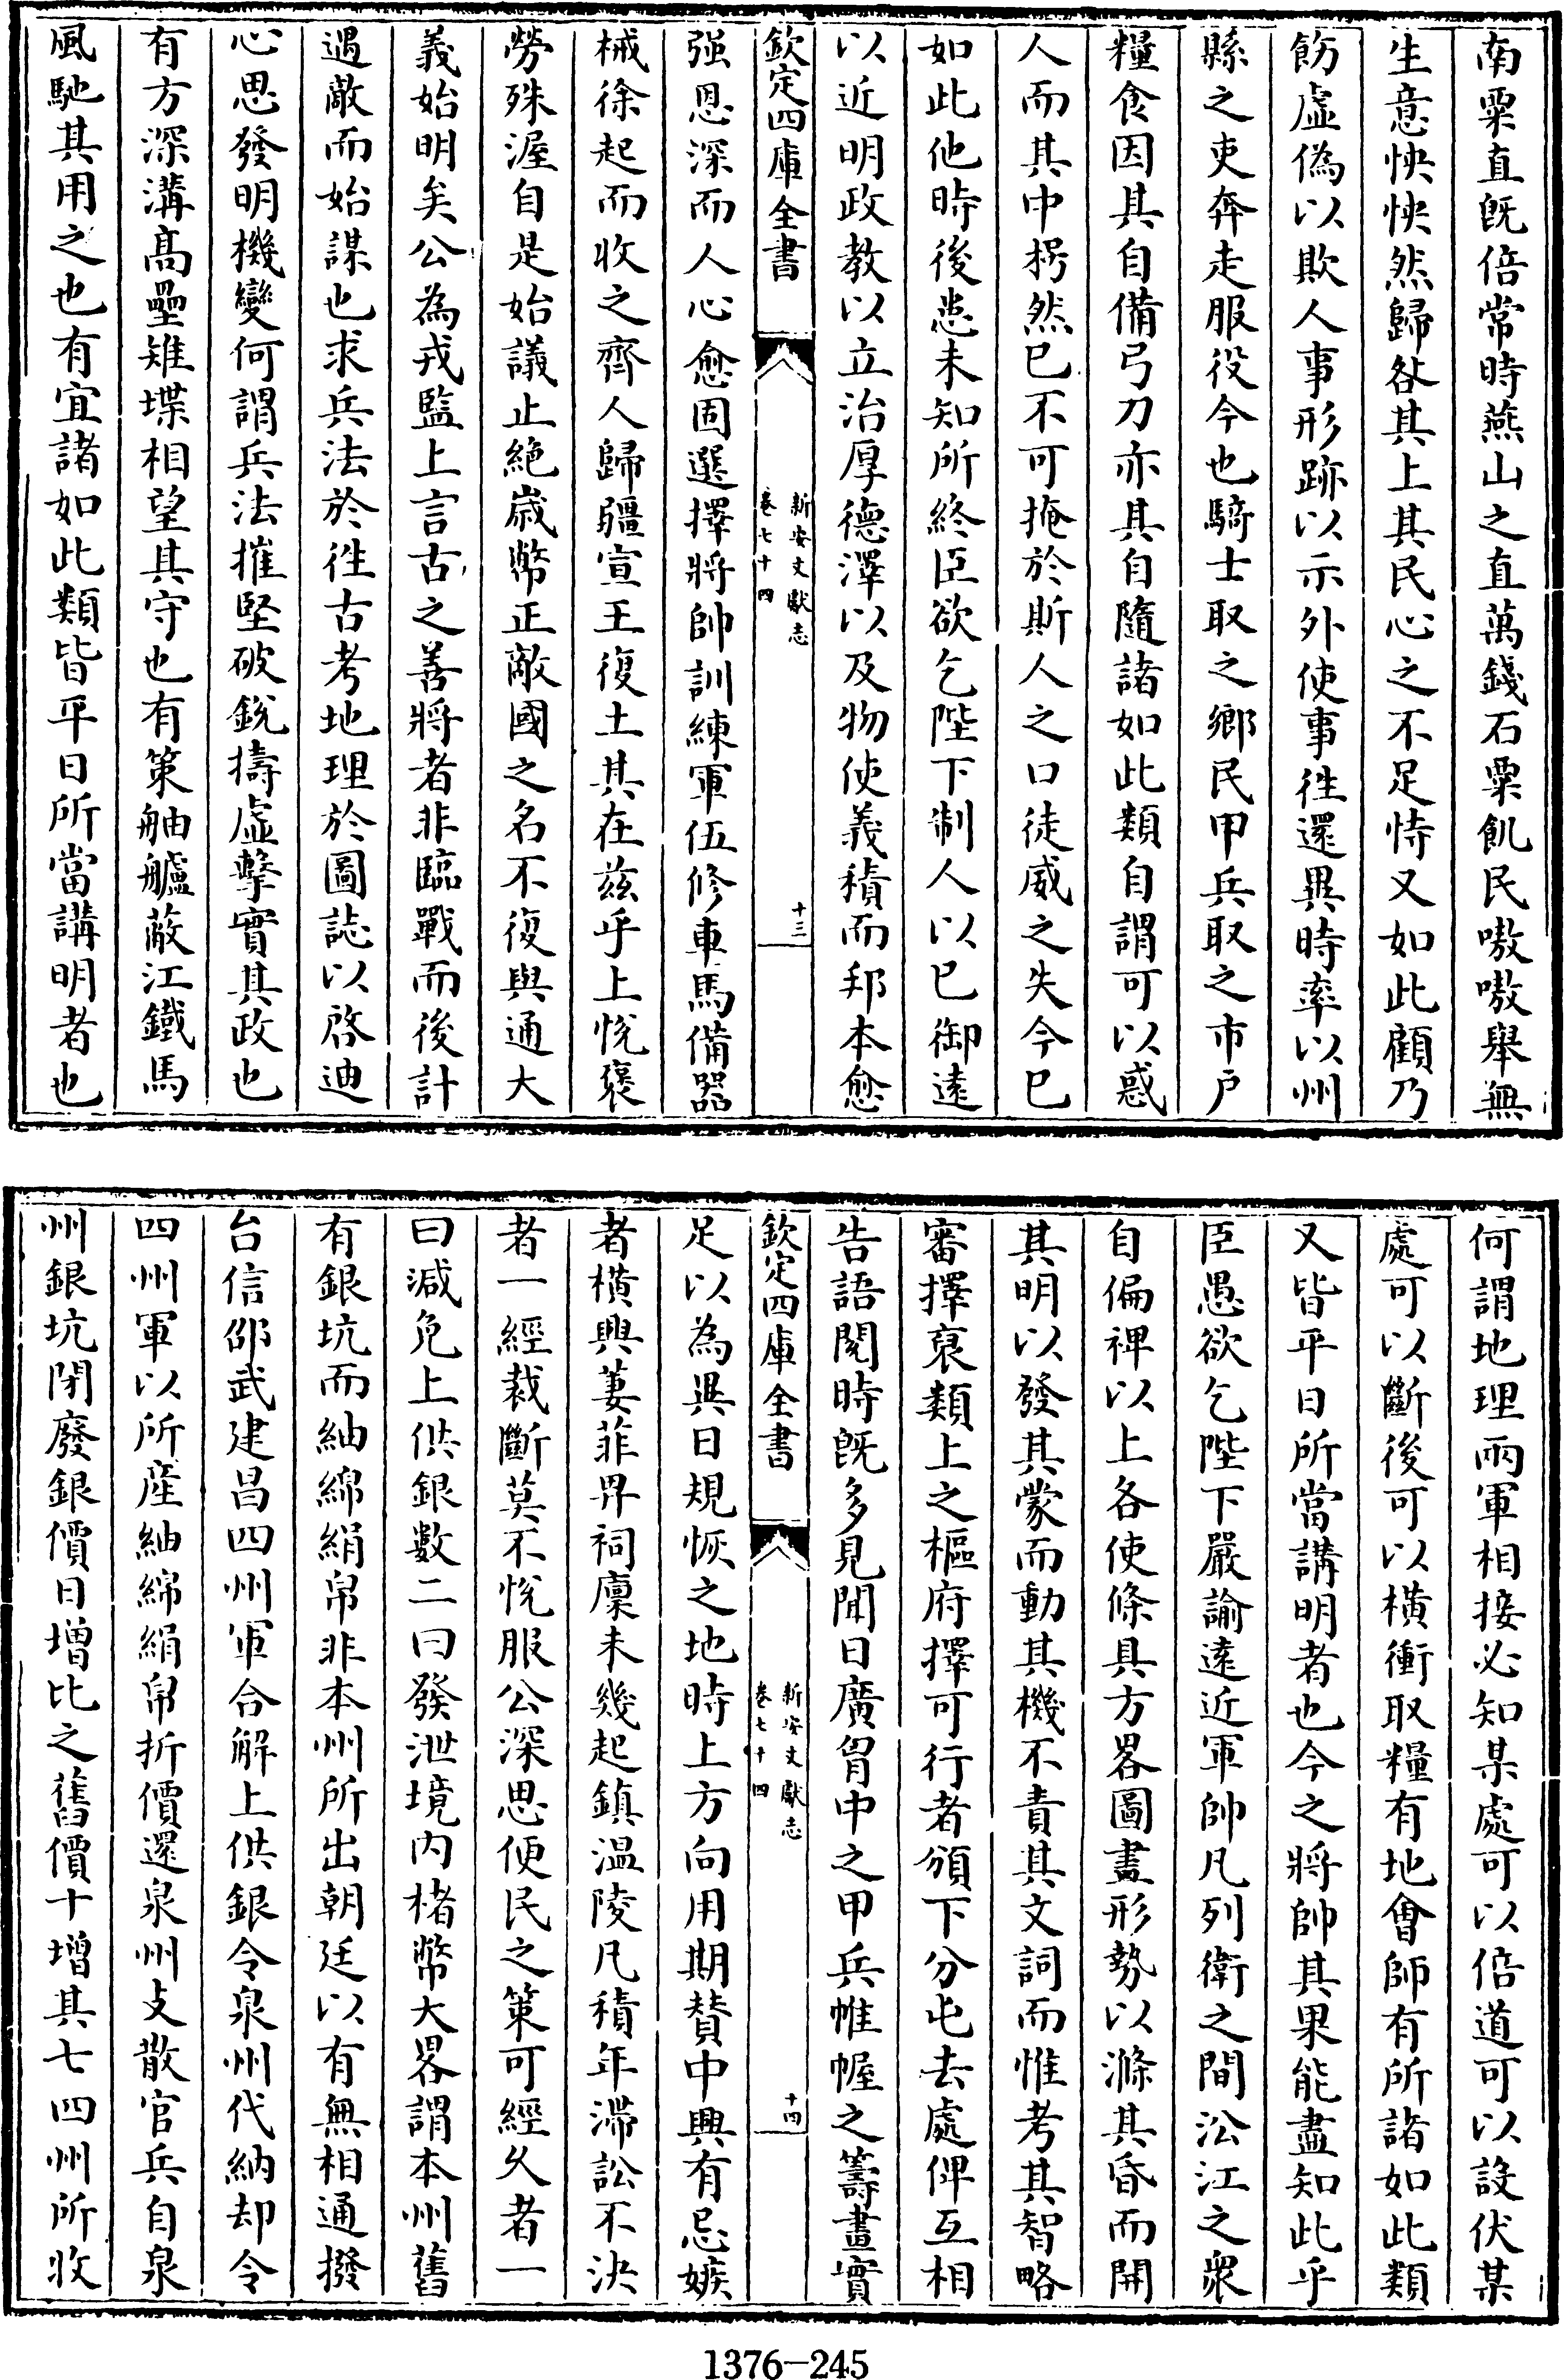 南粟直既倍常時燕山之直萬錢石粟飢民嗷嗷舉無
生意怏怏然歸咎其上其民心之不足恃又如此顧乃
飭虛偽以欺人事形跡以示外使事徃還異時率以州
縣之吏奔走服役今也騎士取之鄉民甲兵取之市户
糧食因其自備弓刀亦其自隨諸如此類自謂可以惑
人而其中枵然已不可掩於斯人之口徒威之失今已
如此他時後患未知所終臣欲乞陛下制人以已御逺
以近明政教以立治厚德澤以及物使義積而邦本愈
欽定四庫全書
新安文獻志
卷七十四
十三
強恩深而人心愈固選擇將帥訓練軍伍修車馬備器
械徐起而收之齊人歸疆宣王復土其在兹乎上悅褒
勞殊渥自是始議止絶嵗幣正敵國之名不復與通大
義始明矣公為戎監上言古之善將者非臨戰而後計
遇敵而始謀也求兵法於徃古考地理於圖誌以啓迪
心思發明機變何謂兵法摧堅破銳擣虛擊實其政也
有方深溝髙壘雉堞相望其守也有策舳艫蔽江鐵馬
風馳其用之也有宜諸如此類皆平日所當講明者也
何謂地理兩軍相接必知某處可以倍道可以設伏某
處可以斷後可以橫衝取糧有地會師有所諸如此類
又皆平日所當講明者也今之將帥其果能盡知此乎
臣愚欲乞陛下嚴諭逺近軍帥凡列衛之間㳂江之衆
自偏裨以上各使條具方畧圖畫形勢以滌其昏而開
其明以發其蒙而動其機不責其文詞而惟考其智略
審擇裒類上之樞府擇可行者頒下分屯去處俾互相
告語閱時既多見聞日廣胷中之甲兵帷幄之籌畫實
欽定四庫全書
新安文獻志
卷七十四
十四
足以為異日規恢之地時上方向用期賛中興有忌嫉
者橫興萋菲畀祠廪未幾起鎮温陵凡積年滯訟不決
者一經裁斷莫不悅服公深思便民之策可經久者一
曰減免上供銀數二曰發泄境内楮幣大畧謂本州舊
有銀坑而紬綿絹帛非本州所出朝廷以有無相通撥
台信邵武建昌四州軍合解上供銀令泉州代納却令
四州軍以所産紬綿絹帛折價還泉州支散官兵自泉
州銀坑閉廢銀價日増比之舊價十増其七四州所收
1376-245